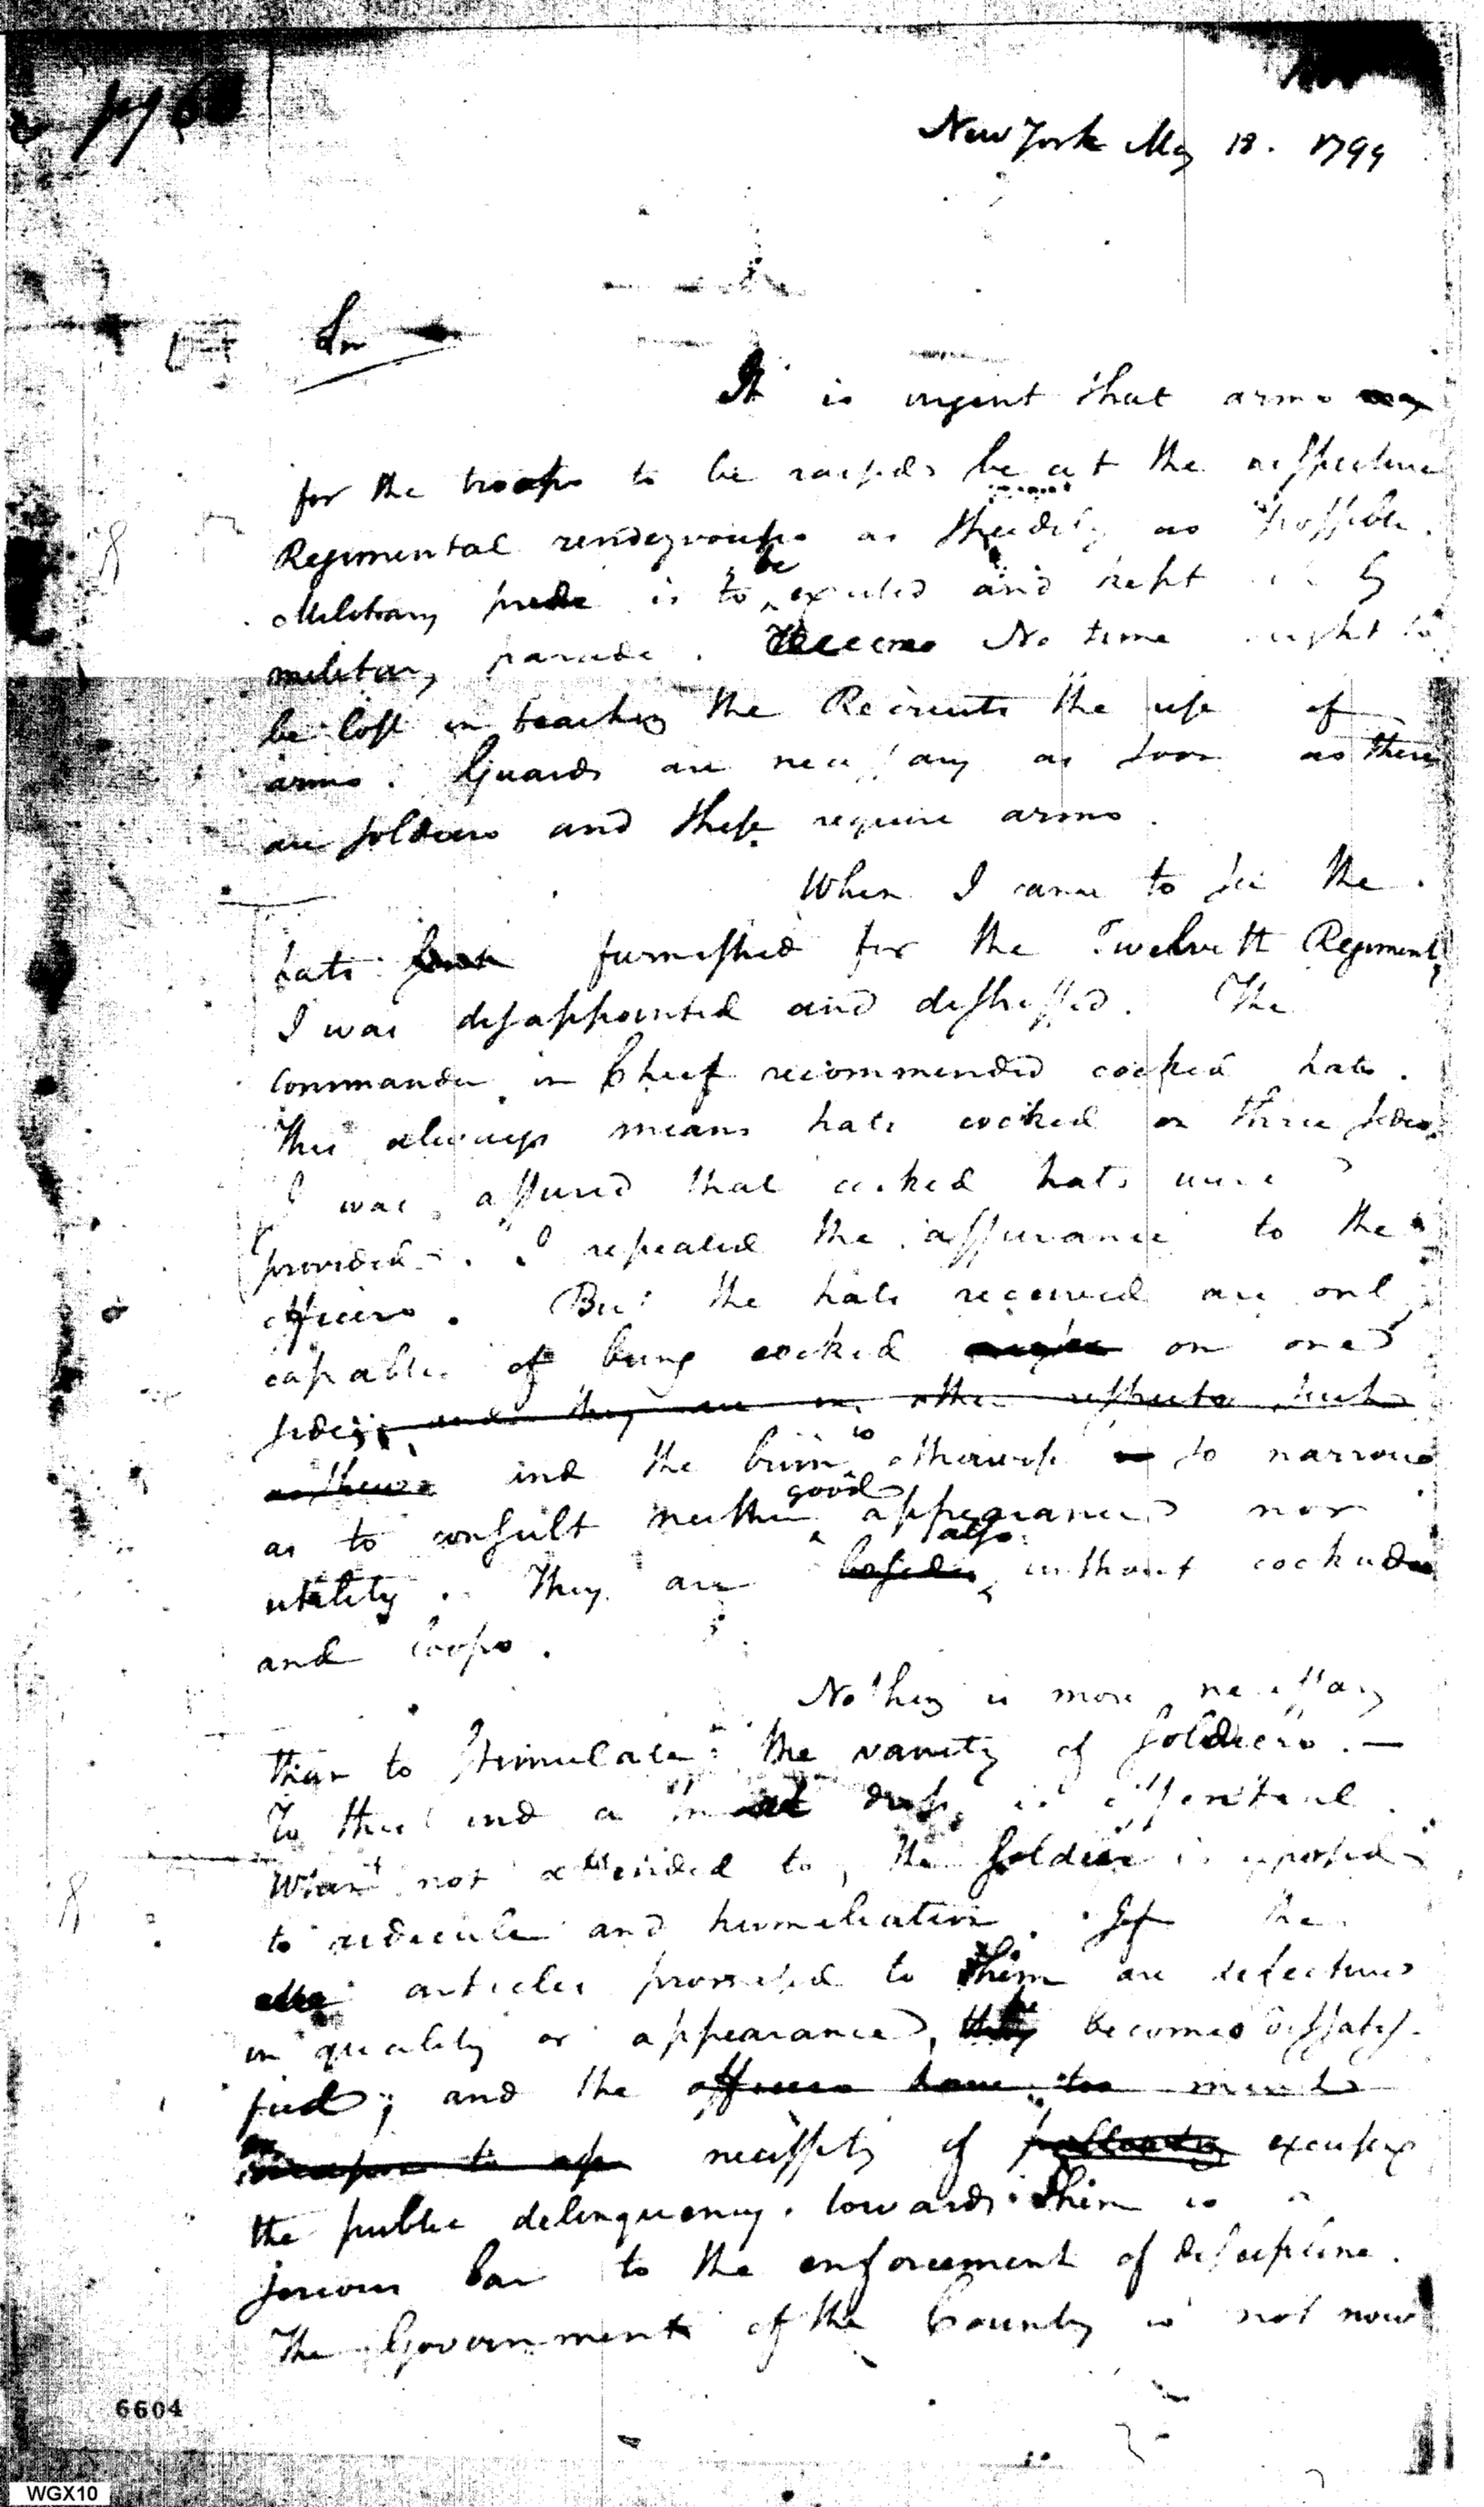 New York May 18. 1799
Sir
It is urgent that arms
for the troops to be raised be at the respective
Regimental rendezvouses as speedily as possible.
Military pride is to be excited and kept by
military parade. No time ought to
be lost in teaching the Recruits the use of
arms. Guards are necessary as soon as there
are soldiers and these require arms.
When I came to see the
hats furnished for the Twelveth Regiment,
I was disappointed and distressed. The
Commander in Chief recommended cocked hats.
This always means hats cocked on three sides.
I was assured that cocked hats were
provided. I repeated the assurance to the
officers. But the hats received are only
capable of being cocked on one
side; and they are in other respects such
and the brim is otherwise so narrow
as to consult neither good appearance nor
utility. They are besides also without cockades
and loops.
Nothing is more necessary
than to stimulate the vanity of soldiers. —
To this end a smart dress is essential.
When not attended to, the soldier is exposed
to ridicule and humiliation. If the
articles promised to him are defective
in quality or appearance, he becomes dissatis-
fied; and the officers have too much
necessity of excusing
the public delinquency towards him is a
serious bar to the enforcement of discipline.
The Government of the Country is not now
6604
WGX10